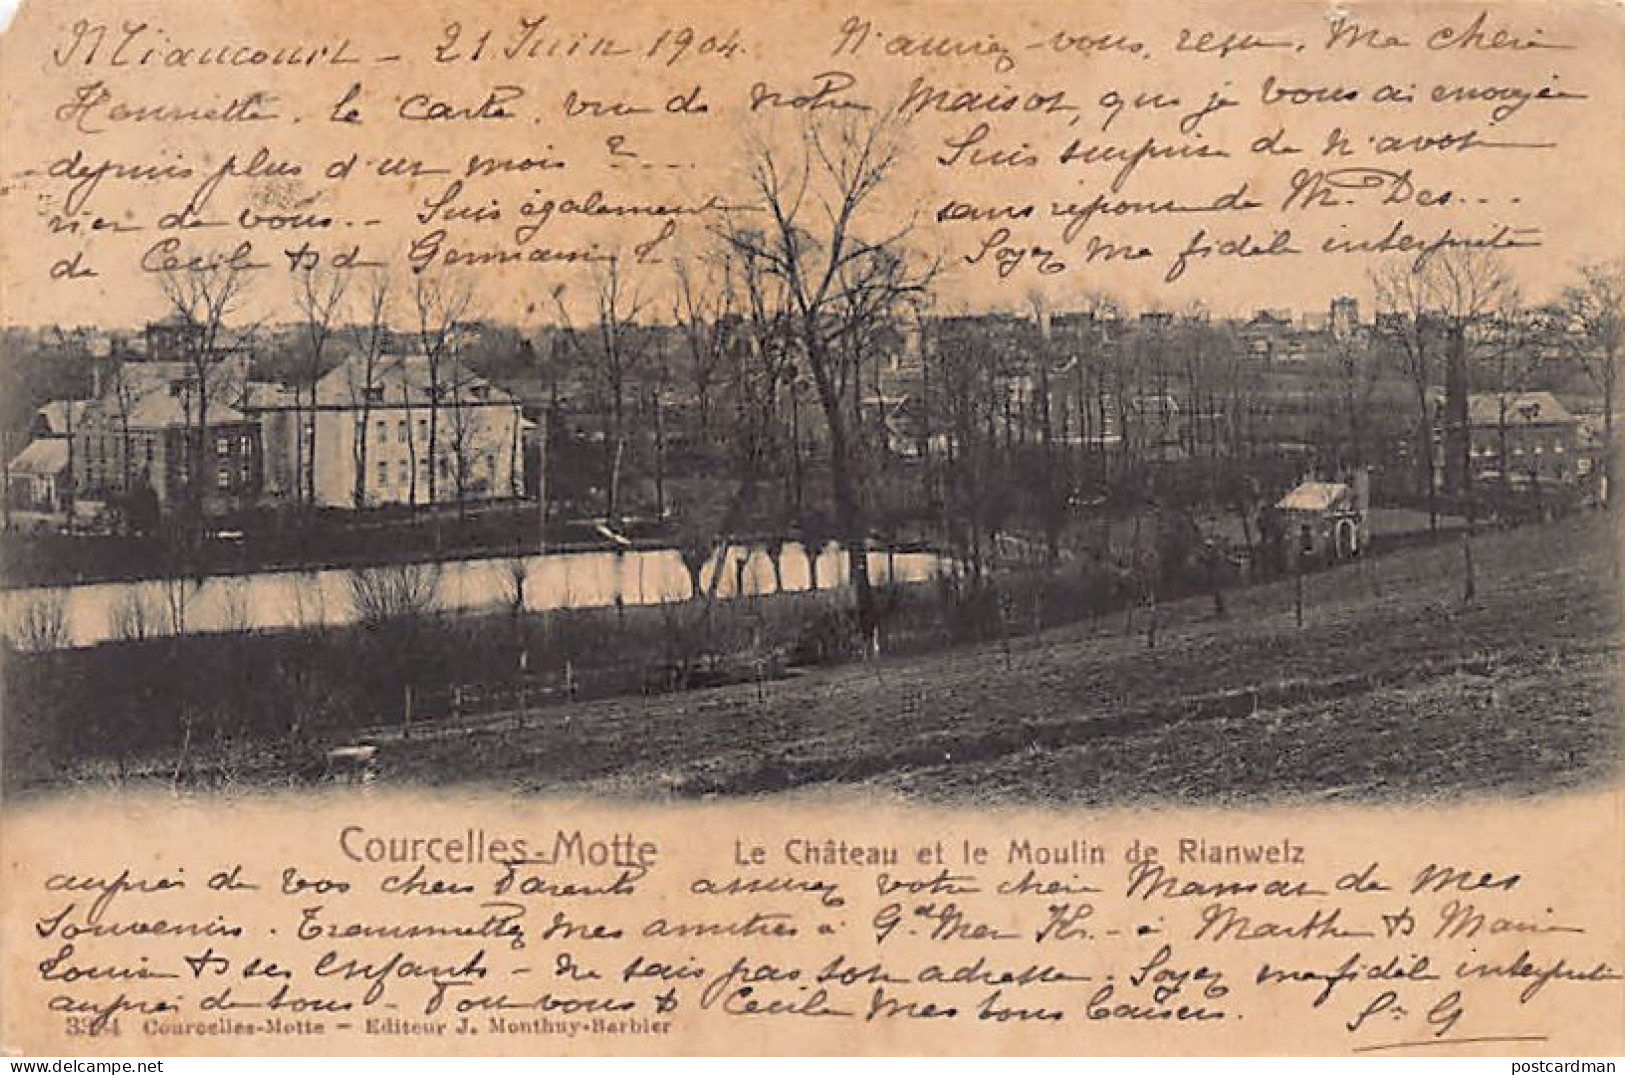 Miaucourt - 21 Juin 1904. N'auriez-vous, reçu, Ma chère
Henriette, la carte, vue de notre Maison, que je vous ai envoyée
depuis plus d'un mois ? ... Suis surprise de n'avoir
rien de vous. - Suis également sans réponse de M. Des...
de Cécile & de Germaine L. Soyez ma fidèle interprète
Courcelles-Motte Le Château et le Moulin de Rianwelz
auprès de vos chers Parents, assurez votre chère Maman de mes
Souvenirs. Transmettez mes amitiés à Gd Mère - à Marthe & Marie
Louise & ses Enfants - ne sais pas son adresse. Soyez ma fidèle interprète
auprès de tous - Pour vous & Cécile Mes bons baisers. Sr G
Courcelles-Motte - Editeur J. Monthuy-Barbier
postcardman